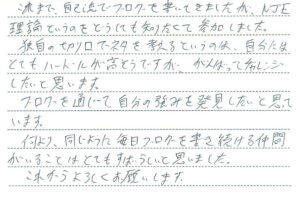 次まで、自己流でブログを書いてきましたが、NJE
理論というのをどうしても知りたくて参加しました。
独自の切り口でネタを考えるというのは、自分には
とてもハードルが高そうですが、がんばってチャレンジ
したいと思います。
ブログを通じて自分の強みを発見したいと思って
います。
何より、同じように毎日ブログを書き続ける仲間
がいることはとてもすばらしいと思いました。
これからよろしくお願いします。